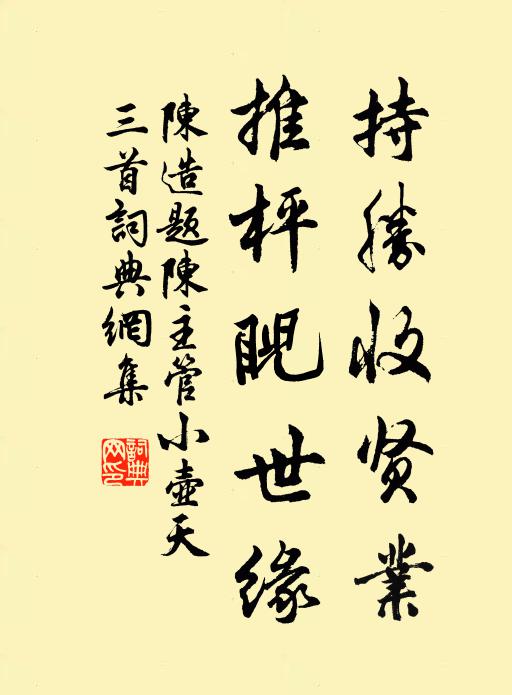 持勝收贤業
推枰睨世缘
陳造題陳主管小壺天
三首詞典網集
詞典
网印